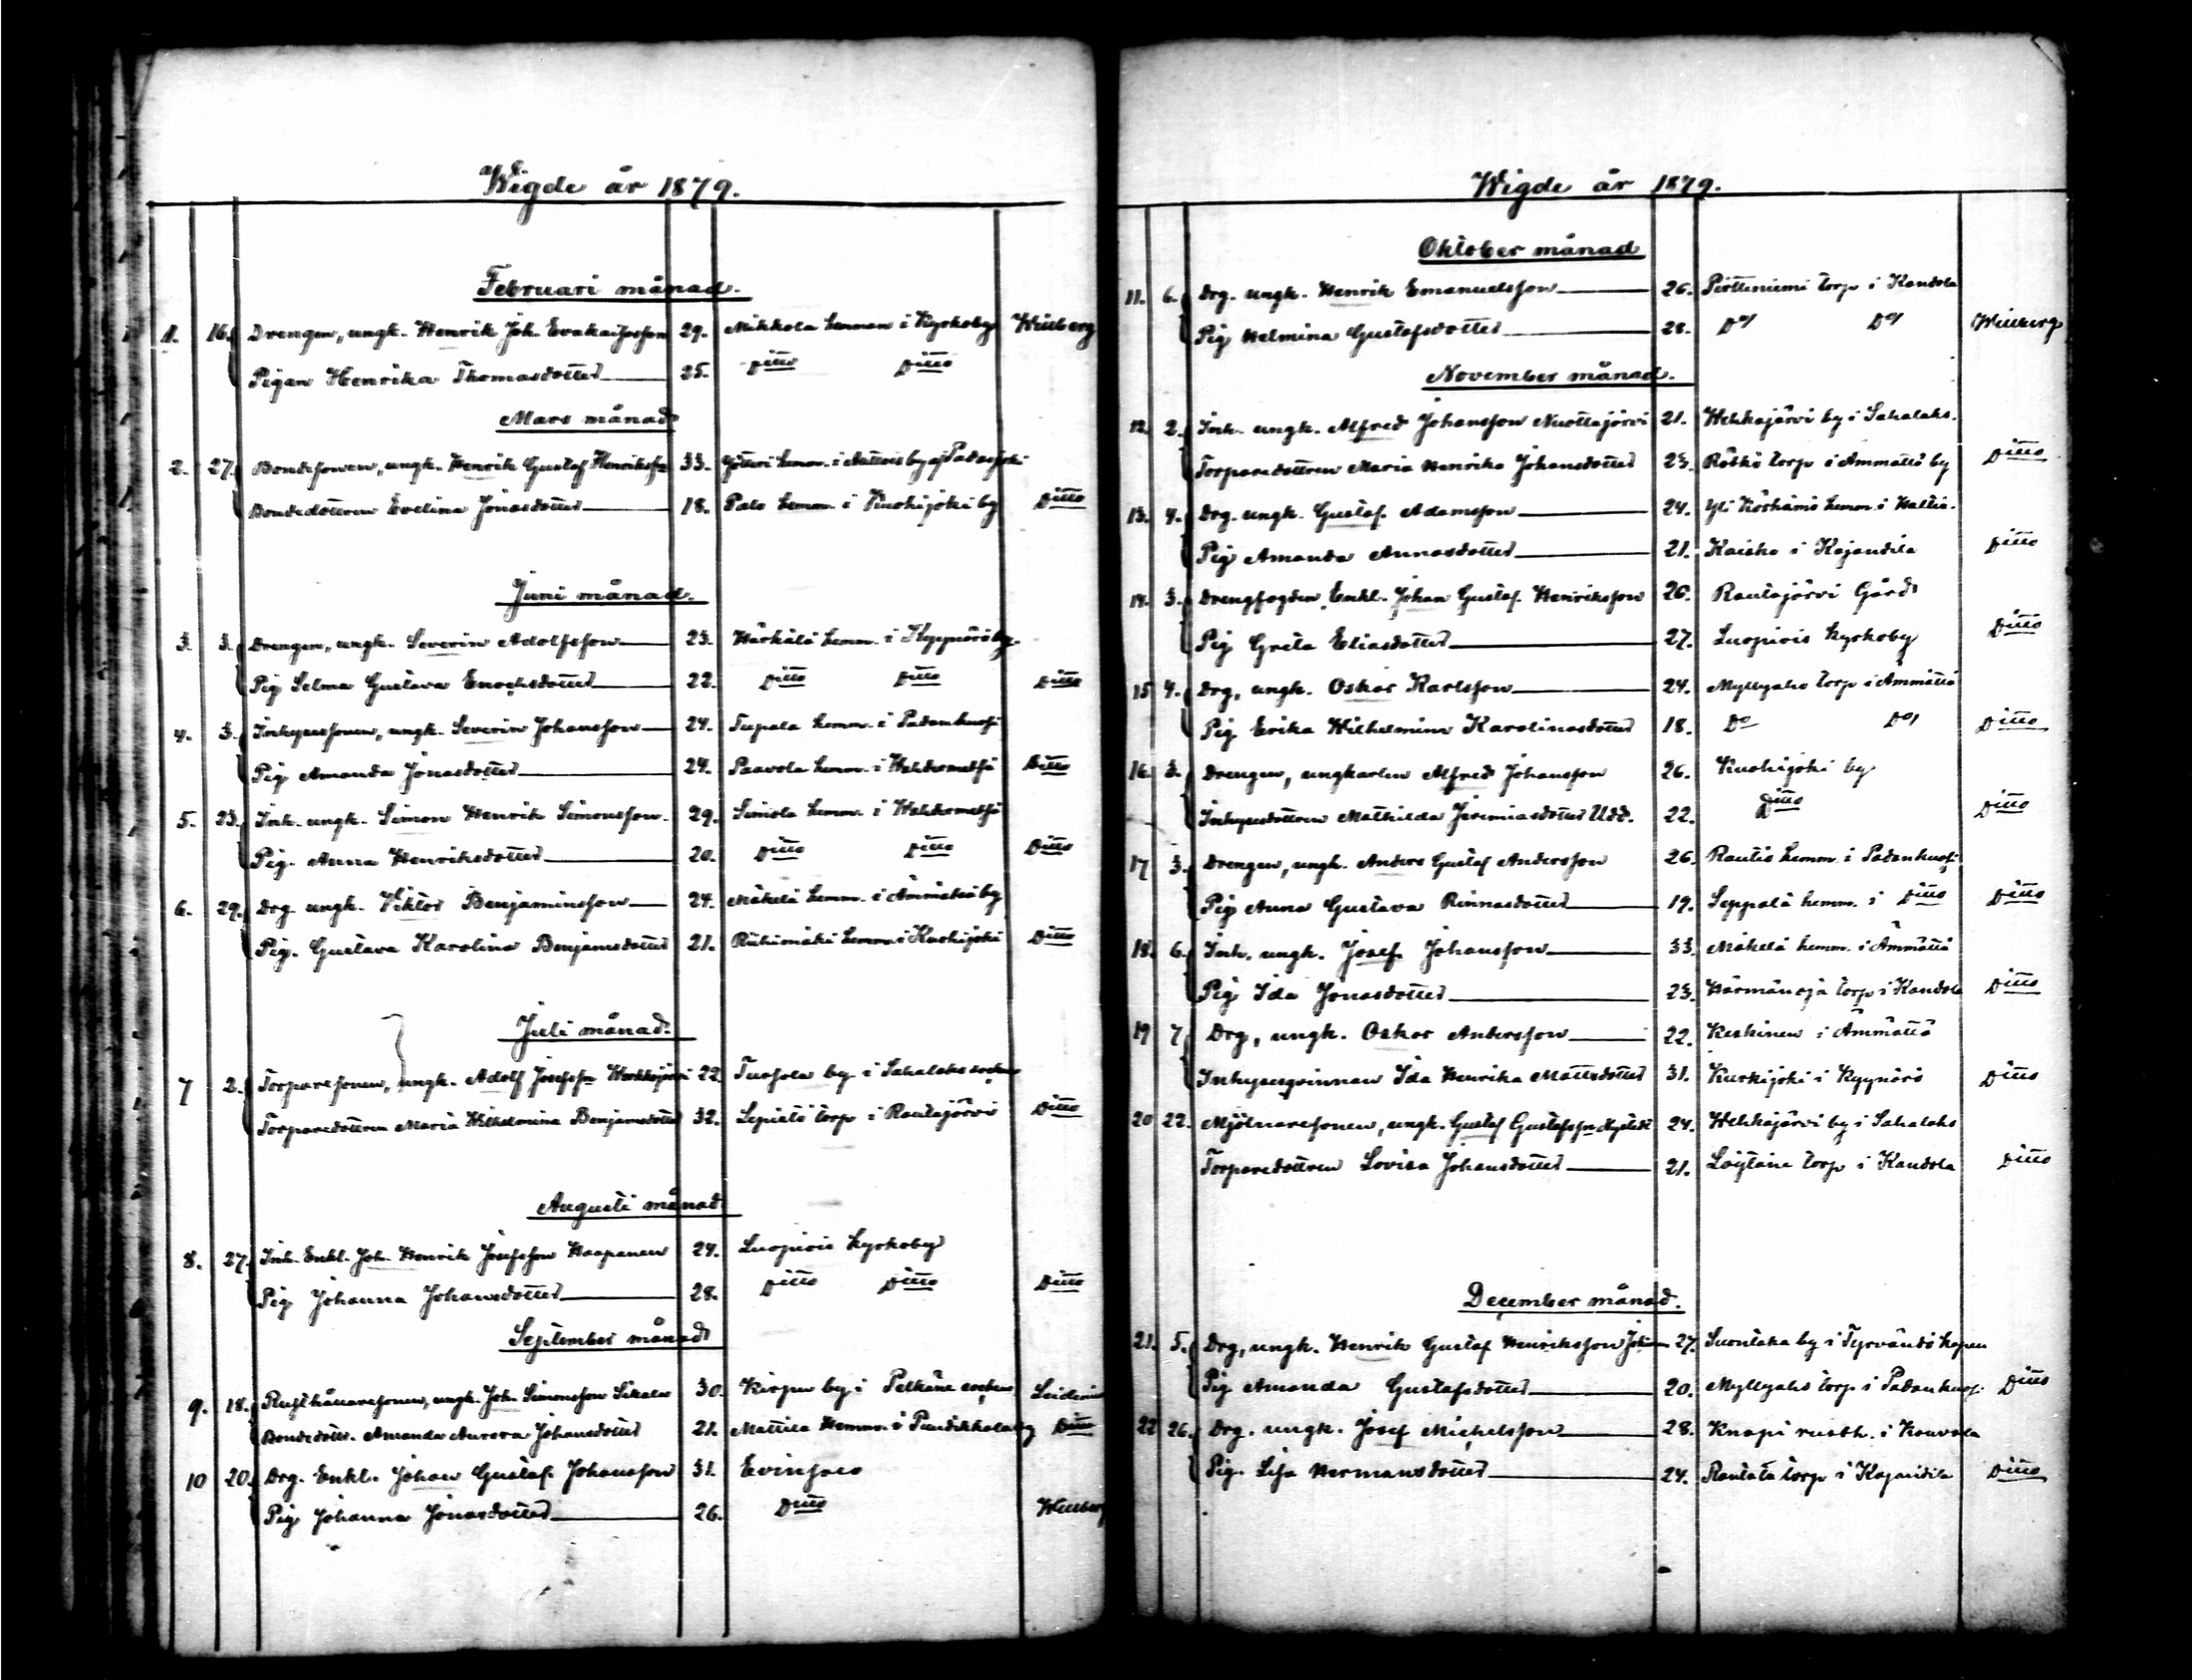 Wigde år 1879.
Februari månad.
1. 16. Drengen, ungk. Henrik Joh. 29. Mikkola hemman i Kyrkoby
Pigan Henrika Thomasdotter 25. Ditto Ditto
Mars månad
2. 27. Bondesonen, ungk. Henrik Gustaf Henriksson 33. hemm. i by af Padasjoki
Bondedottren Evelina Jonasdotter 18. Palo hemm. i Kuohijoki by Ditto
Juni månad.
3. 3. Drengen, ungk. Severin Adolfsson 23. Härkälä hemm. i Kyynärö by.
Pig Selma Gustava Enochsdotter 22. Ditto Ditto Ditto
4. 3. Inhysessonen, ungk. Severin Johansson 24. Teepala hemm. i Padankoski
Pig Amanda Jonasdotter 24. Paavola hemm. i Ditto
5. 23. Inh. ungk. Simon Henrik Simonsson. 29. Simola hemm. i
Pig. Anna Henriksdotter 20. Ditto Ditto Ditto
6. 29. Drg. ungk. Viktor Benjaminsson 24. Mäkelä hemm. i Ämmätsä by
Pig. Gustava Karolina Benjamsdotter 21. Riihimäki hemm. i Kuohijoki Ditto
Juli månad.
7 2. Torparesonen, ungk. Adolf Josefsson 22. by i Sahalaks socken
Torparedottren Maria Wilhelmina Benjamsdotter 32. torp i Rautajärvi Ditto
Augusti månad
8. 27. Inh. Enkl. Joh. Henrik Josefsson Haapanen 24. Luopiois kyrkoby
Pig Johanna Johansdotter 28. Ditto Ditto Ditto
September månad
9. 18. Rusthållaresonen, ungk. Joh. Simonsson 30. by i Pelkäne socken
Bondedottr. Amanda Aurora Johansdotter 21. Mattila Hemm. i Puutikkala by Ditto
10 20. Drg. Enkl. Johan Gustaf Johansson 31. Evinsalo
Pig Johanna Jonasdotter 26. Ditto
Wigde år 1879.
Oktober månad
11. 6. Drg. ungk. Henrik Emanuelsson 26. torp i Kandola
Pig Helmina Gustafsdotter 28. Do Do
November månad.
12. 2. Inh. ungk. Alfred Johansson Nuottajärvi 21. Wehkajärvi by i Sahalaks.
Torparedottren Maria Henrika Johansdotter 23. torp i Ämmättö by Ditto
13. 4. Drg. ungk. Gustaf Adamsson 24. Yli hemm. i
Pig Amanda Annasdotter 21. i Kajandila Ditto
14. 3. Drengfogden, Enkl. Johan Gustaf Henriksson 26. Rautajärvi Gård
Pig Greta Eliasdotter 27. Luopiois kyrkoby Ditto
15 4. Drg, ungk. Oskar Karlsson 24. Myllyaho torp i Ämmättö
Pig Erika Wilhelmina Karolinasdotter 18. Do Do Ditto
16. 3. Drengen, ungkarlen Alfred Johansson 26. Kuohijoki by
Inhysesdottren Mathilda Jeremiasdotter Udd. 22. Ditto Ditto
17 3. Drengen, ungk. Anders Gustaf Andersson 26. Rautio hemm. i Padankoski
Pig Anna Gustava Rinnasdotter 19. Seppälä hemm. i Ditto Ditto
18. 6. Inh. ungk. Josef Johansson 33. Mäkelä hemm. i Ämmättö
Pig Ida Jonasdotter 23. Härmänoja torp i Kandola Ditto
19 7. Drg, ungk. Oskar Andersson 22. Keskinen i Ämmättö
Inhysesqvinnan Ida Henrika Mattsdotter 31. Kurkijoki i Kyynärö Ditto
20 22. Mjölnaresonen, ungk. Gustaf Gustafsson 24. Wehkajärvi by i Sahalaks
Torparedottren Lovisa Johansdotter 21. Löytäne torp i Kandola Ditto
December månad.
21. 5. Drg, ungk. Henrik Gustaf Henriksson 27. Suontaka by i Tyrväntö kapell
Pig Amanda Gustafsdotter 20. Myllyaho torp i Padankoski Ditto
22 26. Drg. ungk. Josef Michelsson 28. Knapi rusth. i Kouvala
Pig. Lisa Hermansdotter 24. Rautata torp i Kajandila Ditto